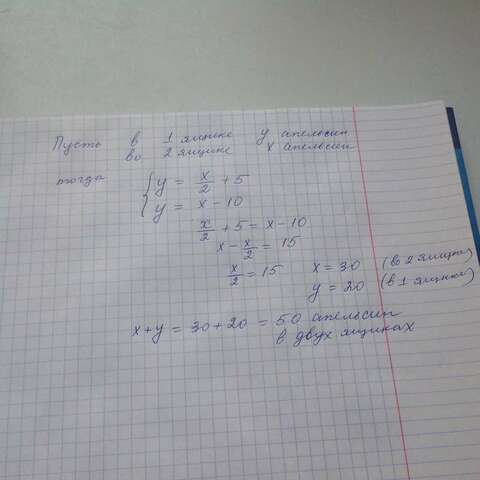 Пусть в 1 ящике y апельсин
во 2 ящике x апельсин
тогда
{ y = x/2 + 5
y = x - 10
x/2 + 5 = x - 10
x - x/2 = 15
x/2 = 15 x = 30 (во 2 ящике)
y = 20 (в 1 ящике)
x + y = 30 + 20 = 50 апельсин
в двух ящиках